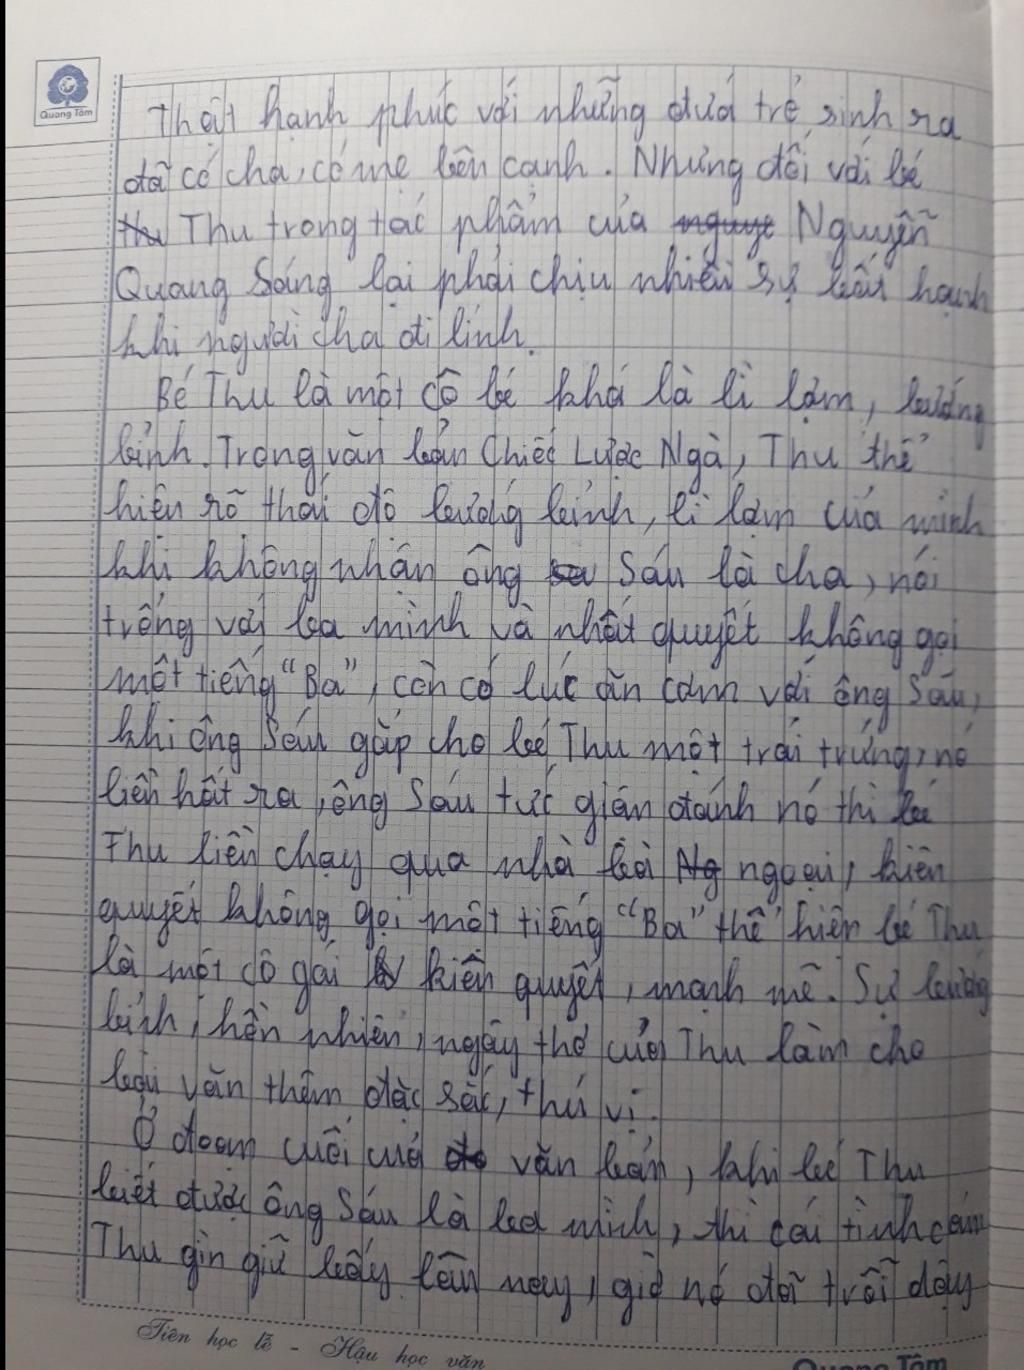 Quang Tâm
Thật hạnh phúc với những đứa trẻ sinh ra
đã có cha, có mẹ bên cạnh. Nhưng đối với bé
thu Thu trong tác phẩm của nguye Nguyễn
Quang Sáng lại phải chịu nhiều sự bất hạnh
khi người cha đi lính.
Bé Thu là một cô bé khá là lì lợm, bướng
bỉnh. Trong văn bản Chiếc Lược Ngà, Thu thể
hiện rõ thái độ bướng bỉnh, lì lợm của mình
khi không nhận ông Sáu là cha, nói
trống với ba mình và nhất quyết không gọi
một tiếng "Ba", còn có lúc ăn cơm với ông Sáu,
khi ông Sáu gắp cho bé Thu một trái trứng, nó
liền hất ra, ông Sáu tức giận đánh nó thì bé
Thu liền chạy qua nhà bà Ng ngoại, kiên
quyết không gọi một tiếng "Ba" thể hiện bé Thu
là một cô gái kiên quyết, mạnh mẽ. Sự bướng
bỉnh, hồn nhiên, ngây thơ của Thu làm cho
bài văn thêm đặc sắc, thú vị.
Ở đoạn cuối của đo văn bản, khi bé Thu
biết được ông Sáu là ba mình, thì cái tình cảm
Thu gìn giữ bấy lâu nay, giờ nó đã trỗi dậy
Tiên học lễ - Hậu học văn
Quang Tâm